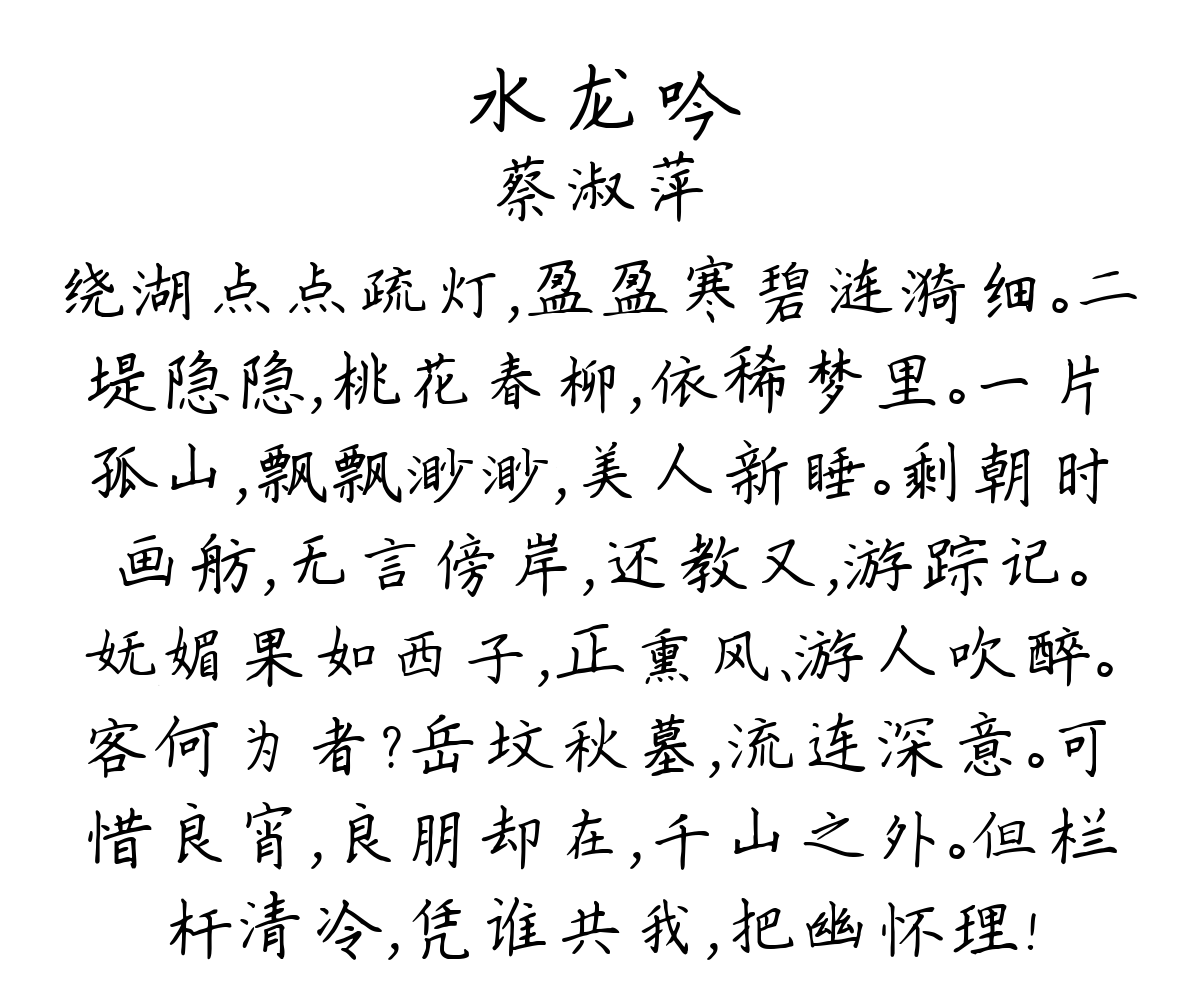 水龙吟
蔡淑萍
绕湖点点疏灯,盈盈寒碧涟漪细。二
堤隐隐,桃花春柳,依稀梦里。一片
孤山,飘飘渺渺,美人新睡。剩朝时
画舫,无言傍岸,还教又,游踪记。
妩媚果如西子,正熏风、游人吹醉。
客何为者?岳坟秋墓,流连深意。可
惜良宵,良朋却在,千山之外。但栏
杆清冷,凭谁共我,把幽怀理!